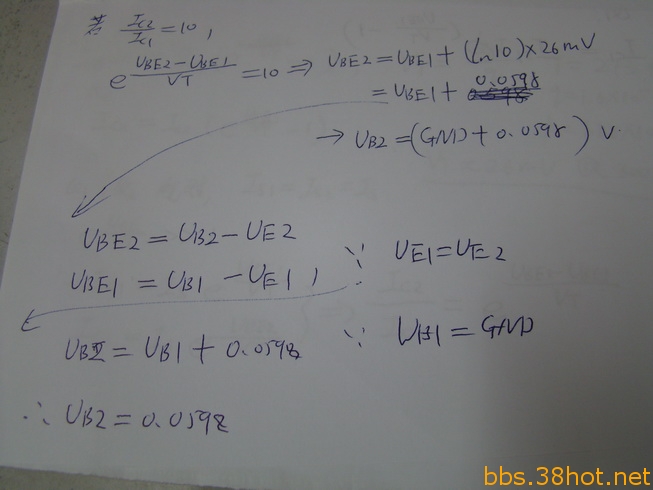 若 IC2/IC1 = 10,
e^((UBE2-UBE1)/VT) = 10 ⇒ UBE2 = UBE1 + (ln10) × 26mV
= UBE1 + 0.0598
→ UB2 = (GND + 0.0598) V.
UBE2 = UB2 - UE2
∵ UE1 = UE2
UBE1 = UB1 - UE1,
UB2 = UB1 + 0.0598
∵ UB1 = GND
∴ UB2 = 0.0598
bbs.38hot.net